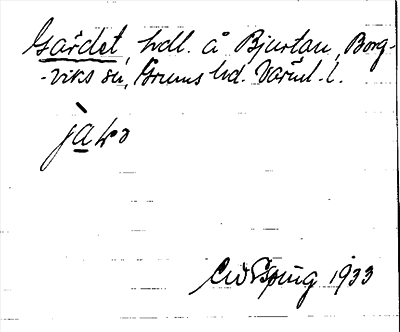 Gärdet, hdl. å Bjurtan, Borg-
-viks sn, Grums hd. Värml. l.
jàko
CWSpong 1933